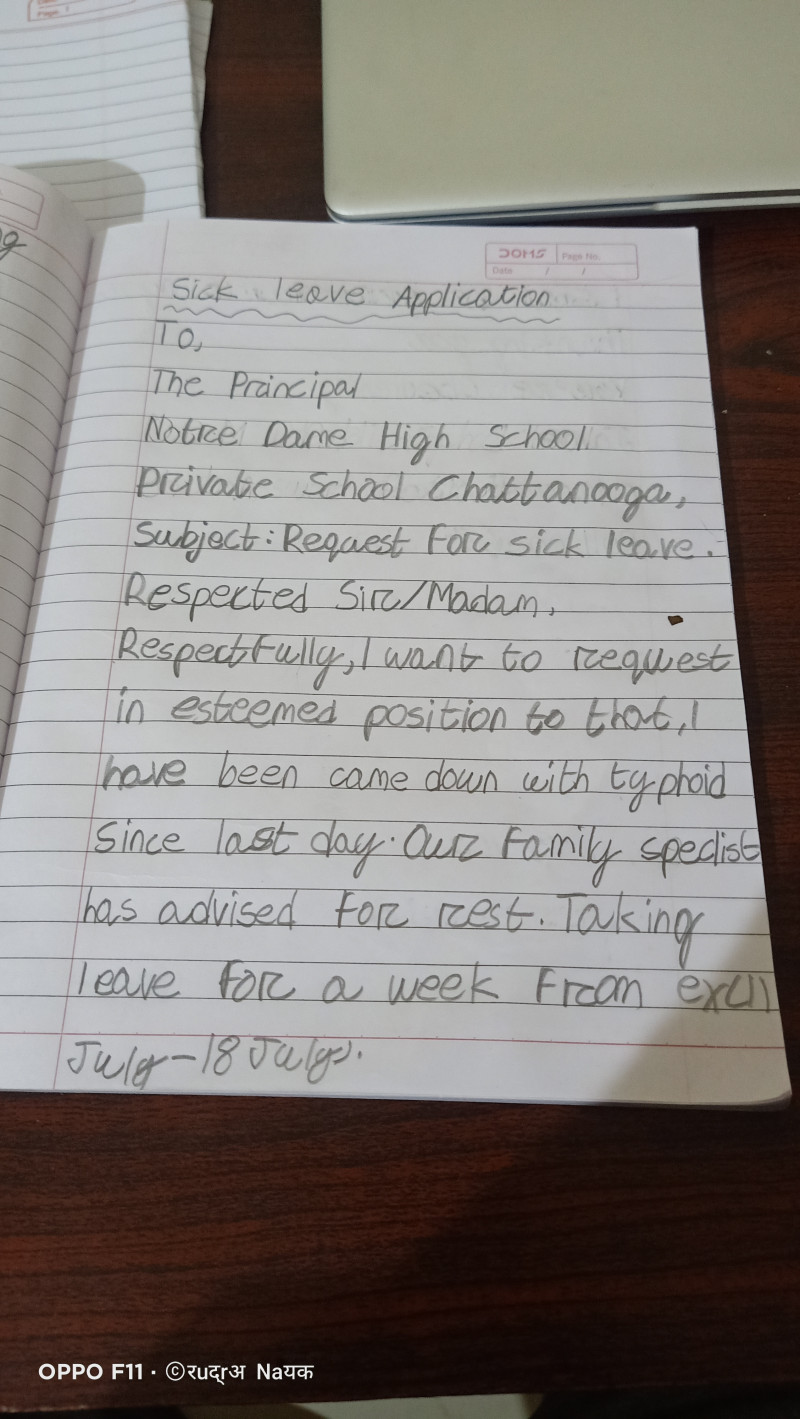 DOMS Page No.
Date / /
Sick leave Application
To,
The Principal
Notre Dame High School
Private School Chattanooga,
Subject: Request For sick leave.
Respected Sir/Madam,
Respectfully, I want to request
in esteemed position to that, I
have been came down with typhoid
Since last day. Our Family speclist
has advised For rest. Taking
leave for a week From
July-18 July).
OPPO F11 · ©रudrअ Naयक